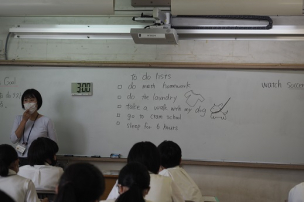 Goal
3:00
To do lists
□ do math homework
□ do the laundry
□ take a walk with my dog
□ go to cram school
□ sleep for 8 hours
watch Soccer